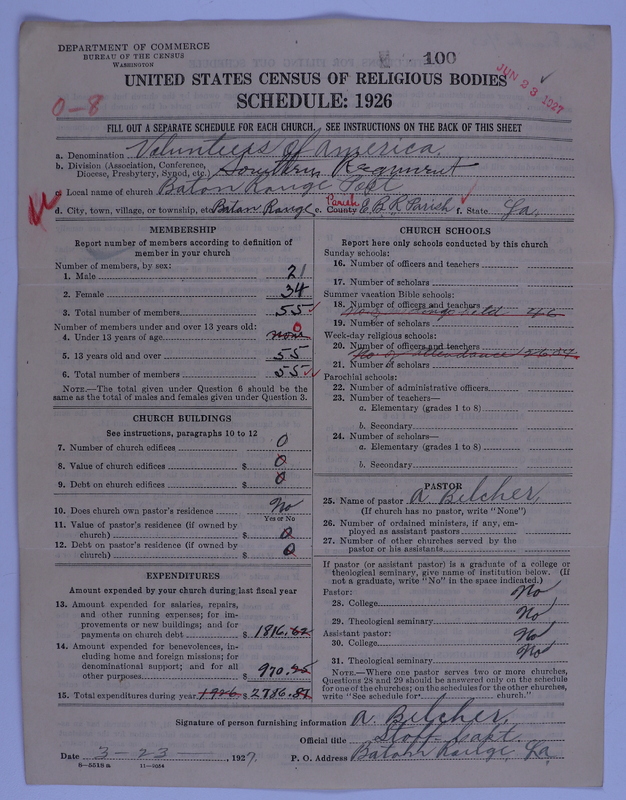 DEPARTMENT OF COMMERCE
BUREAU OF THE CENSUS
WASHINGTON
100
JUN 23 1927
UNITED STATES CENSUS OF RELIGIOUS BODIES
0-8
SCHEDULE: 1926
FILL OUT A SEPARATE SCHEDULE FOR EACH CHURCH, SEE INSTRUCTIONS ON THE BACK OF THIS SHEET
a. Denomination Volunteers of America
b. Division (Association, Conference, Diocese, Presbytery, Synod, etc.) Southern Regiment
c. Local name of church Baton Rouge
d. City, town, village, or township, etc. Baton Rouge e. County Parish E. B. R. Parish f. State La.
MEMBERSHIP
Report number of members according to definition of
member in your church
Number of members, by sex:
1. Male 21
2. Female 34
3. Total number of members 55
Number of members under and over 13 years old:
4. Under 13 years of age none 0
5. 13 years old and over 55
6. Total number of members 55
NOTE.—The total given under Question 6 should be
same as the total of males and females given under Question 3.
CHURCH BUILDINGS
See instructions, paragraphs 10 to 12
7. Number of church edifices 0
8. Value of church edifices $ 0
9. Debt on church edifices $ 0
10. Does church own pastor's residence No
Yes or No
11. Value of pastor's residence (if owned by
church) $ 0
12. Debt on pastor's residence (if owned by
church) $ 0
EXPENDITURES
Amount expended by your church during last fiscal year
13. Amount expended for salaries, repairs,
and other running expenses; for im-
provements or new buildings; and for
payments on church debt $ 1816.62
14. Amount expended for benevolences, in-
cluding home and foreign missions; for
denominational support; and for all
other purposes $ 970.25
15. Total expenditures during year 1926 $ 2786.87
CHURCH SCHOOLS
Report here only schools conducted by this church
Sunday schools:
16. Number of officers and teachers
17. Number of scholars
Summer vacation Bible schools:
18. Number of officers and teachers
held 46
19. Number of scholars
Week-day religious schools:
20. Number of officers and teachers
No of attendance
21. Number of scholars
Parochial schools:
22. Number of administrative officers
23. Number of teachers—
a. Elementary (grades 1 to 8)
b. Secondary
24. Number of scholars—
a. Elementary (grades 1 to 8)
b. Secondary
PASTOR
25. Name of pastor A. Belcher
(If church has no pastor, write "None")
26. Number of ordained ministers, if any, em-
ployed as assistant pastors
27. Number of other churches served by the
pastor or his assistants
If pastor (or assistant pastor) is a graduate of a college or
theological seminary, give name of institution below. (If
not a graduate, write "No" in the space indicated.)
Pastor:
28. College No
29. Theological seminary No
Assistant pastor:
30. College No
31. Theological seminary No
NOTE.—Where one pastor serves two or more churches,
Questions 28 and 29 should be answered only on the schedule
for one of the churches; on the schedules for the other churches,
write "See schedule for church."
Signature of person furnishing information A. Belcher,
Official title Staff-Capt.
Date 3-23-, 1927. P. O. Address Baton Rouge, La
8—5518 a 11—9554